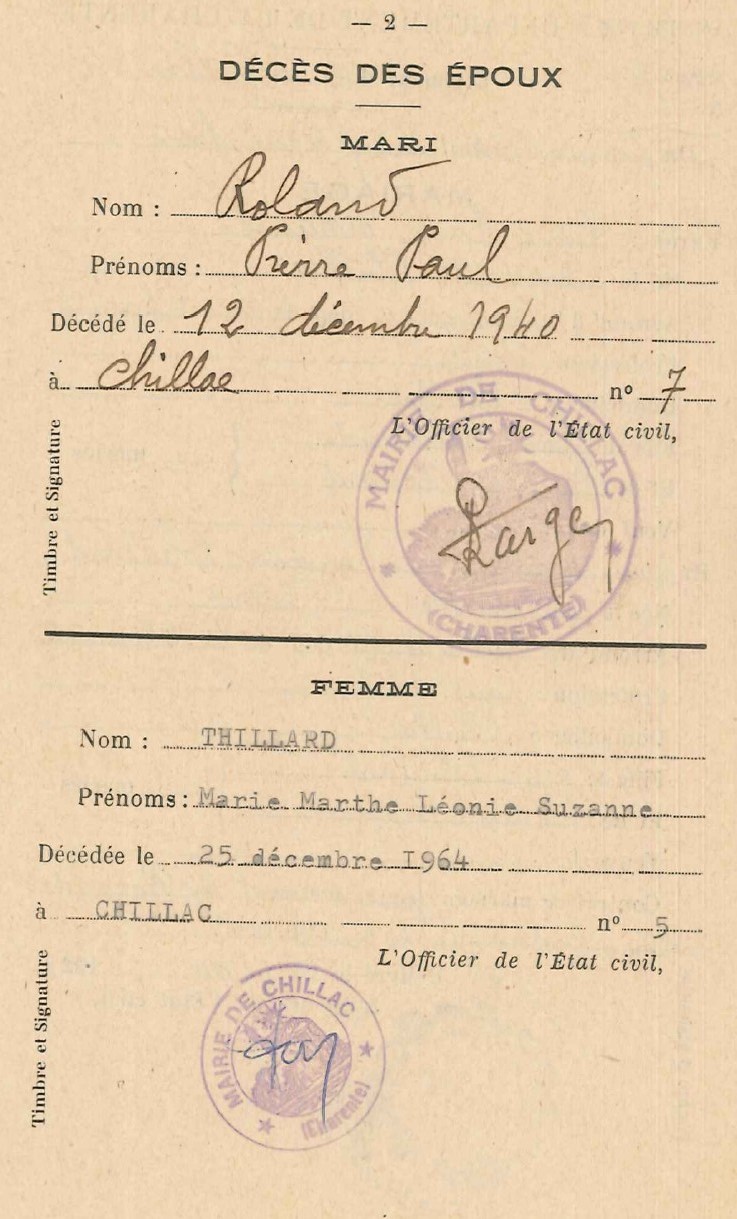 — 2 —
DÉCÈS DES ÉPOUX
MARI
Nom : Roland
Prénoms : Pierre Paul
Décédé le 12 décembre 1940
à Chillac nº 7
L'Officier de l'État civil,
Timbre et Signature
MAIRIE DE CHILLAC
(CHARENTE)
FEMME
Nom : THILLARD
Prénoms : Marie Marthe Léonie Suzanne
Décédée le 25 décembre I964
à CHILLAC nº 5
L'Officier de l'État civil,
Timbre et Signature
MAIRIE DE CHILLAC
(Charente)